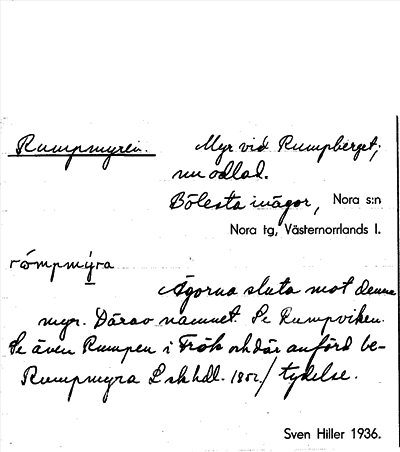 Rumpmyren. Myr vid Rumpberget;
nu odlad.
Bölesta inägor, Nora s:n
Nora tg, Västernorrlands l.
römpmýra
Ägorna sluta mot denna
myr. Därav namnet. Se Rumpviken.
Se även Rumpen i Frök och där anförd be-
Rumpmyra L skhdl. 1802./ tydelse.
Sven Hiller 1936.